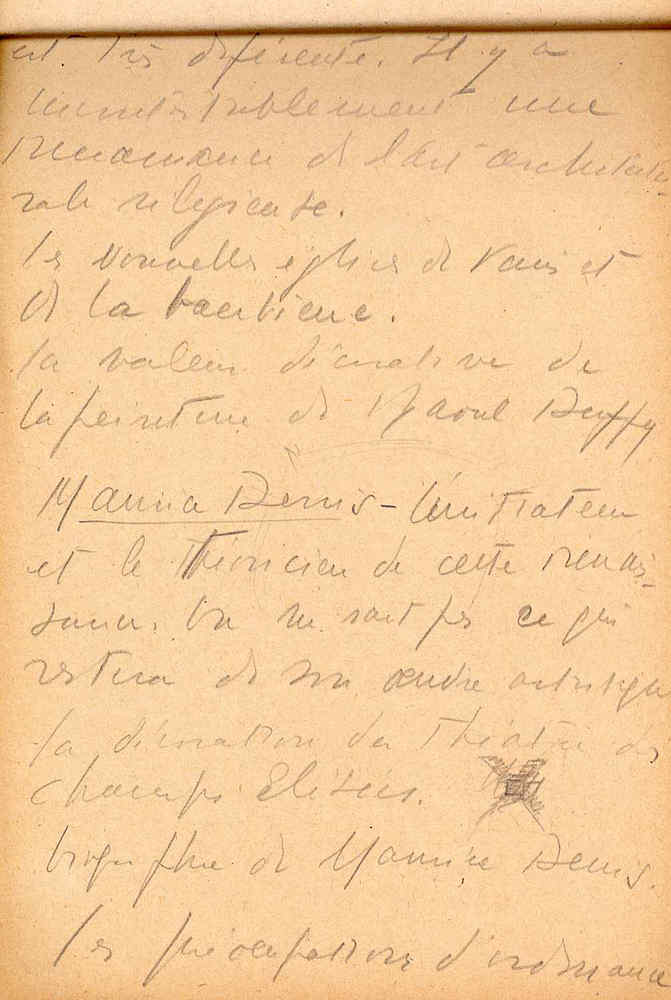 est très différente. Il y a
incontestablement une
renaissance de l'art architectu-
rale religieuse.
les nouvelles églises de Paris et
de la banlieue.
la valeur décorative de
la peinture de Raoul Duffy
Maurice Denis - l'initiateur
et le théoricien de cette renais-
sance. On ne sait pas ce qui
restera de son œuvre artistique
la décoration du Théâtre des
Champs Elisées.
biographie de Maurice Denis.
les préocupations d'ordonnance